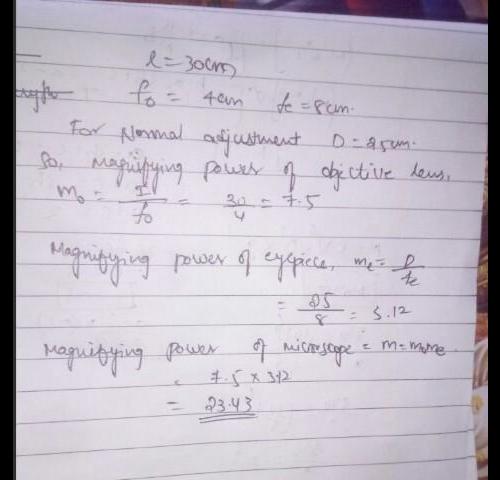 l = 30cm
f₀ = 4cm fe = 8cm.
For Normal adjustment D = 25cm.
So, Magnifying power of objective lens,
m₀ = I/f₀ = 30/4 = 7.5
Magnifying power of eyepiece, me = D/fe
= 25/8 = 3.12
Magnifying power of microscope = m = m₀me
7.5 × 312
= 23.43